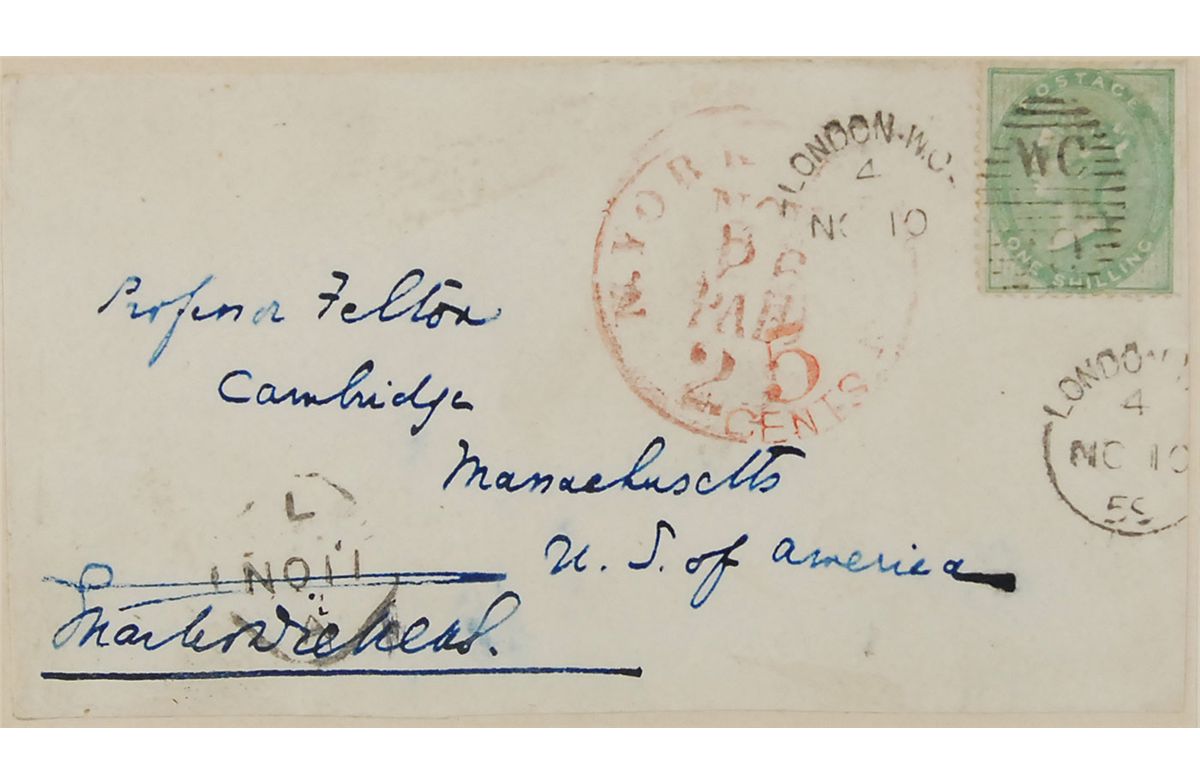 POSTAGE
WC
ONE SHILLING
LONDON·W.C.
4
NO 10
YORK
PAID
25
CENTS
Professor Felton
Cambridge
Massachusetts
U. S. of America
LONDON
4
NO 10
L
NO11
Charles Dickens.